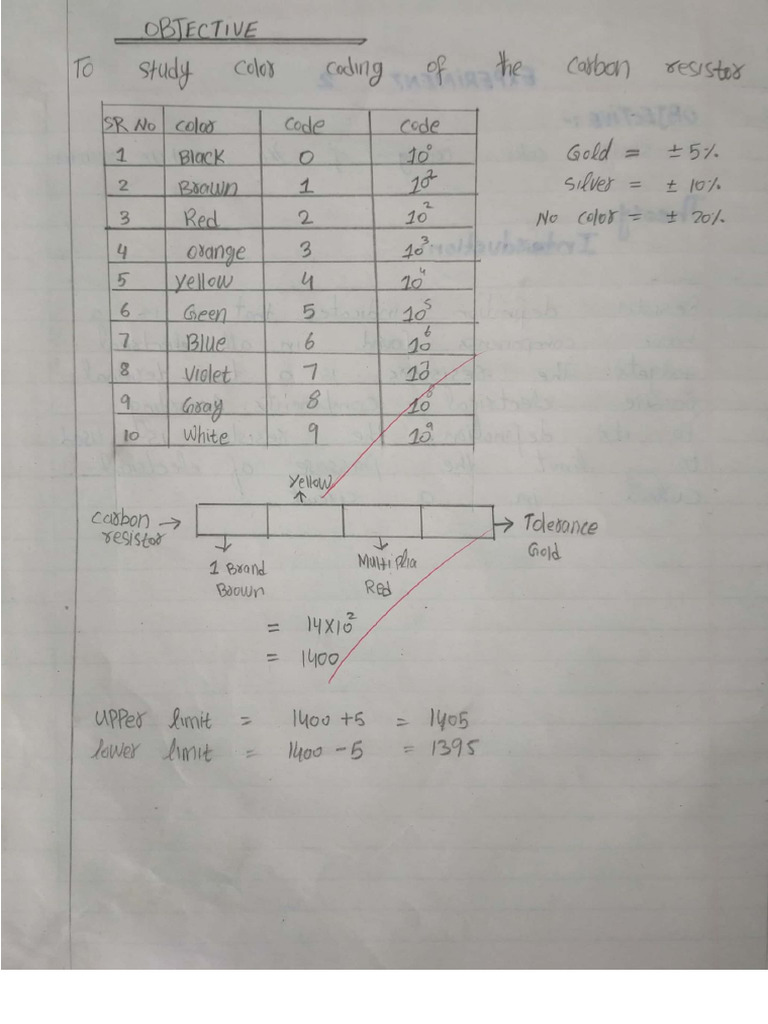 OBJECTIVE
To study color coding of the carbon resistor
SR No color Code Code
1 Black 0 10⁰
2 Brawn 1 10²
3 Red 2 10²
4 orange 3 10³
5 yellow 4 10⁴
6 Geen 5 10⁵
7 Blue 6 10⁶
8 violet 7 10⁷
9 Gray 8 10⁸
10 white 9 10⁹
Gold = ± 5%
Silver = ± 10%
No color = ± 20%
yellow
Carbon resistor → → Tolerance
Gold
1 Brand Multiplia
Brown Red
= 14x10²
= 1400
upper limit = 1400 +5 = 1405
lower limit = 1400 - 5 = 1395